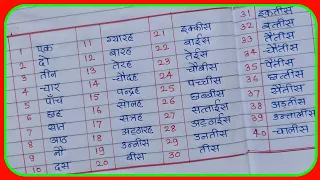 1 एक
2 दो
3 तीन
4 चार
5 पाँच
6 छह
7 सात
8 आठ
9 नौ
10 दस
11 ग्यारह
12 बारह
13 तेरह
14 चौदह
15 पन्द्रह
16 सोलह
17 सत्रह
18 अट्ठारह
19 उन्नीस
20 बीस
21 इक्कीस
22 बाईस
23 तेईस
24 चौबीस
25 पच्चीस
26 छब्बीस
27 सत्ताईस
28 अट्ठाईस
29 उनतीस
30 तीस
31 इकतीस
32 बत्तीस
33 तैंतीस
34 चौंतीस
35 पैंतीस
36 छत्तीस
37 सैंतीस
38 अड़तीस
39 उन्तालीस
40 चालीस